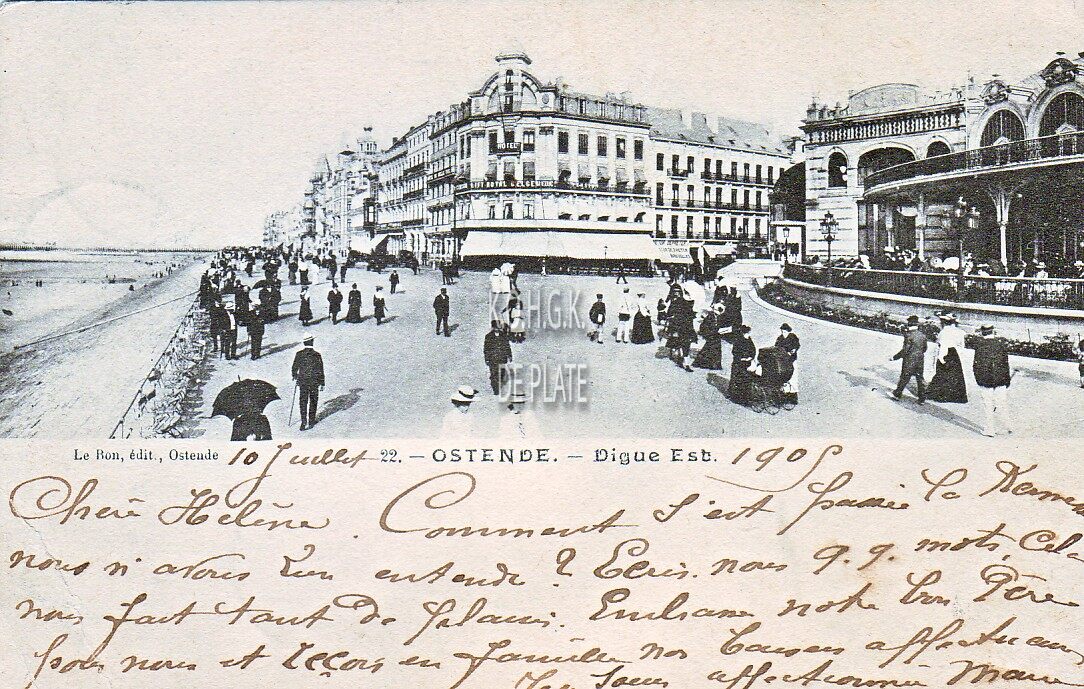 HOTEL
K.H.G.K.
DE PLATE
Le Bon, édit., Ostende 10 Juillet 22. — OSTENDE. — Digue Est. 1905
Chère Hélène. Comment s'est passée la
nous n'avons rien entendu? Ecris nous q.q. mots, Cela
nous fait tant de plaisir. Embrasse notre bon Père
pour nous et reçois en famille nos baisers affectueux
soeur affectionnée